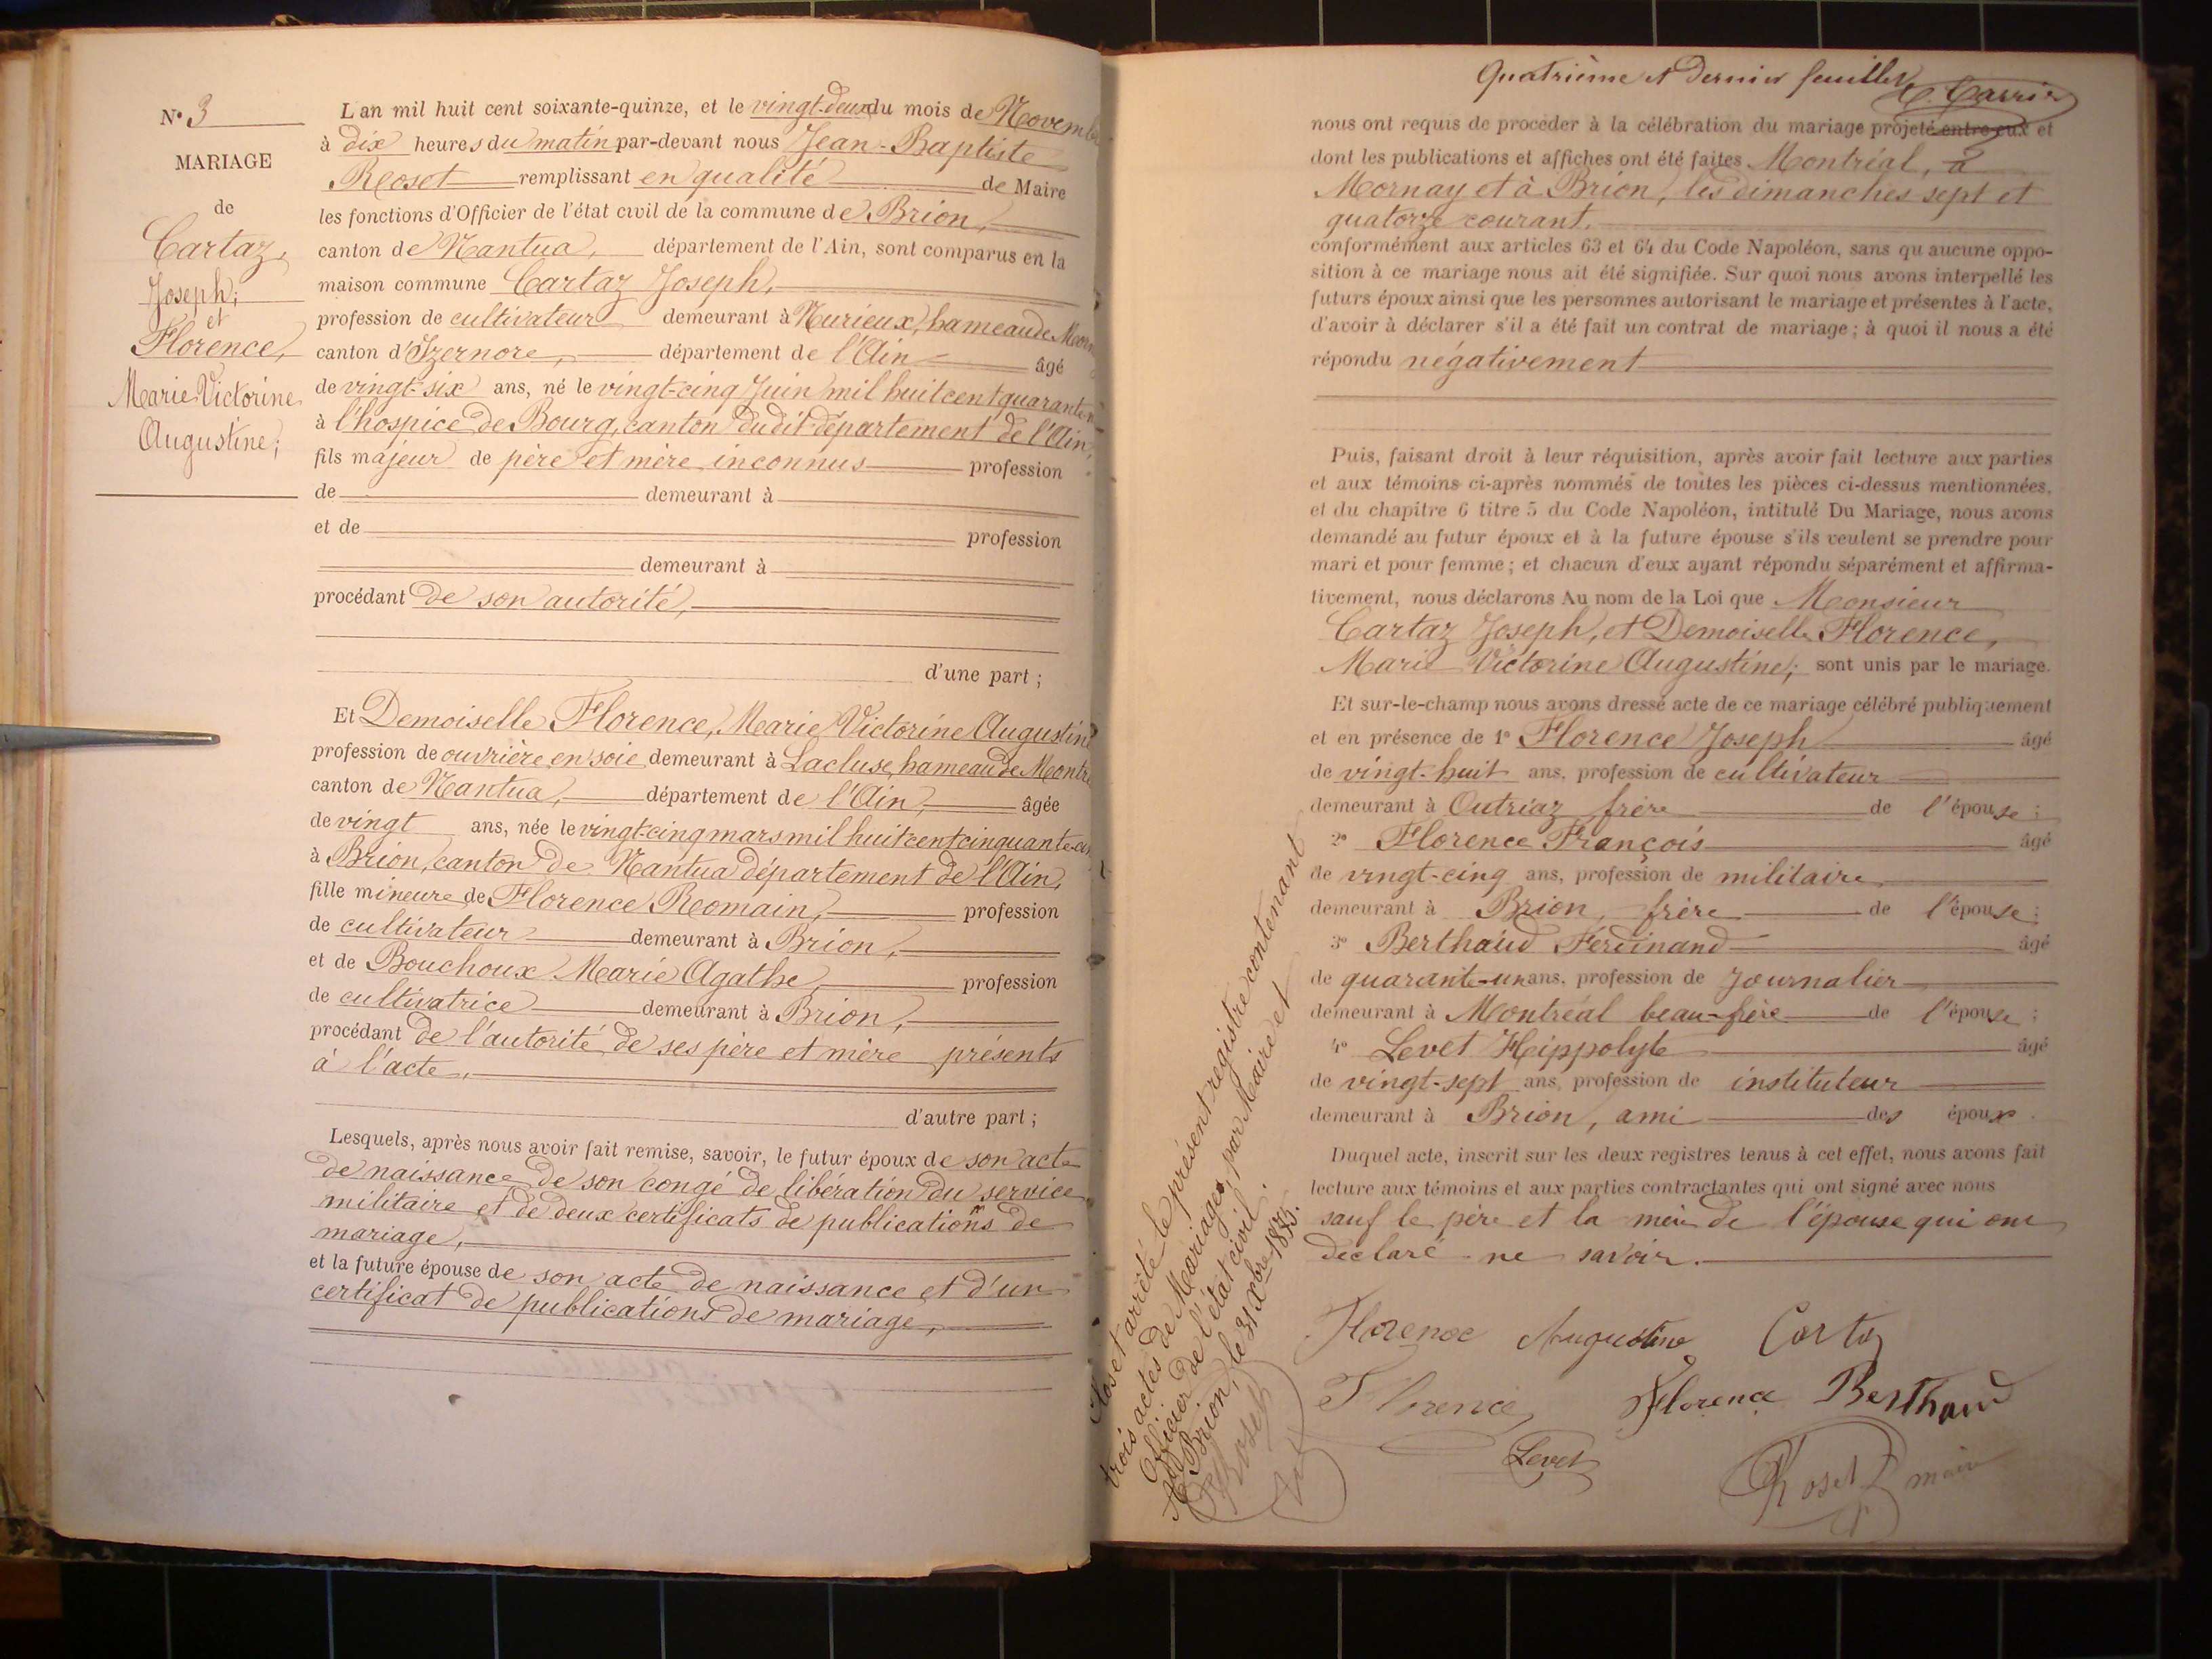 N° 3
MARIAGE
de
Cartaz,
Joseph;
et
Florence,
Marie Victorine
Augustine;
L'an mil huit cent soixante-quinze, et le vingt-deux du mois de Novembre
à dix heures du matin par-devant nous Jean-Baptiste
Roset remplissant en qualité de Maire
les fonctions d'Officier de l'état civil de la commune de Brion,
canton de Nantua, département de l'Ain, sont comparus en la
maison commune Cartaz Joseph,
profession de cultivateur demeurant à Nurieux, hameau de
canton d'Izernore, département de l'Ain âgé
de vingt-six ans, né le vingt-cinq Juin mil huit cent quarante
à l'hospice de Bourg, canton dudit département de l'Ain,
fils majeur de père et mère inconnus profession
de demeurant à
et de profession
demeurant à
procédant de son autorité,
d'une part ;
Et Demoiselle Florence, Marie Victorine Augustine
profession de ouvrière en soie demeurant à Lacluse, hameau de
canton de Nantua, département de l'Ain, âgée
de vingt ans, née le vingt-cinq mars mil huit cent cinquante
à Brion, canton de Nantua département de l'Ain,
fille mineure de Florence Romain, profession
de cultivateur demeurant à Brion,
et de Bouchoux Marie Agathe, profession
de cultivatrice demeurant à Brion,
procédant de l'autorité de ses père et mère présents
à l'acte,
d'autre part ;
Lesquels, après nous avoir fait remise, savoir, le futur époux de son acte
de naissance, de son congé de libération du service
militaire et de deux certificats de publications de
mariage,
et la future épouse de son acte de naissance et d'un
certificat de publications de mariage,
Quatrième et dernier feuillet
C. Carrier
nous ont requis de procéder à la célébration du mariage projeté entre eux et
dont les publications et affiches ont été faites Montréal, à
Mornay et à Brion, les dimanches sept et
quatorze courant,
conformément aux articles 63 et 64 du Code Napoléon, sans qu'aucune oppo-
sition à ce mariage nous ait été signifiée. Sur quoi nous avons interpellé les
futurs époux ainsi que les personnes autorisant le mariage et présentes à l'acte,
d'avoir à déclarer s'il a été fait un contrat de mariage ; à quoi il nous a été
répondu négativement
Puis, faisant droit à leur réquisition, après avoir fait lecture aux parties
et aux témoins ci-après nommés de toutes les pièces ci-dessus mentionnées,
et du chapitre 6 titre 5 du Code Napoléon, intitulé Du Mariage, nous avons
demandé au futur époux et à la future épouse s'ils veulent se prendre pour
mari et pour femme ; et chacun d'eux ayant répondu séparément et affirma-
tivement, nous déclarons Au nom de la Loi que Monsieur
Cartaz Joseph, et Demoiselle Florence,
Marie Victorine Augustine; sont unis par le mariage.
Et sur-le-champ nous avons dressé acte de ce mariage célébré publiquement
et en présence de 1° Florence Joseph âgé
de vingt-huit ans, profession de cultivateur
demeurant à Outriaz frère de l'épouse ;
2° Florence François âgé
de vingt-cinq ans, profession de militaire
demeurant à Brion, frère de l'épouse ;
3° Berthaud Ferdinand âgé
de quarante-un ans, profession de Journalier
demeurant à Montréal beau-frère de l'épouse ;
4° Levet Hippolyte âgé
de vingt-sept ans, profession de instituteur
demeurant à Brion, ami des époux.
Duquel acte, inscrit sur les deux registres tenus à cet effet, nous avons fait
lecture aux témoins et aux parties contractantes qui ont signé avec nous
sauf le père et la mère de l'épouse qui ont
déclaré ne savoir.
Florence Augustine Cartaz
Florence Florence Berthaud
Levet
Roset maire
Clos et arrêté le présent registre contenant
trois actes de Mariages, par Maire et
Officier de l'état civil.
A Brion, le 31 Xbre 1875.
Roset